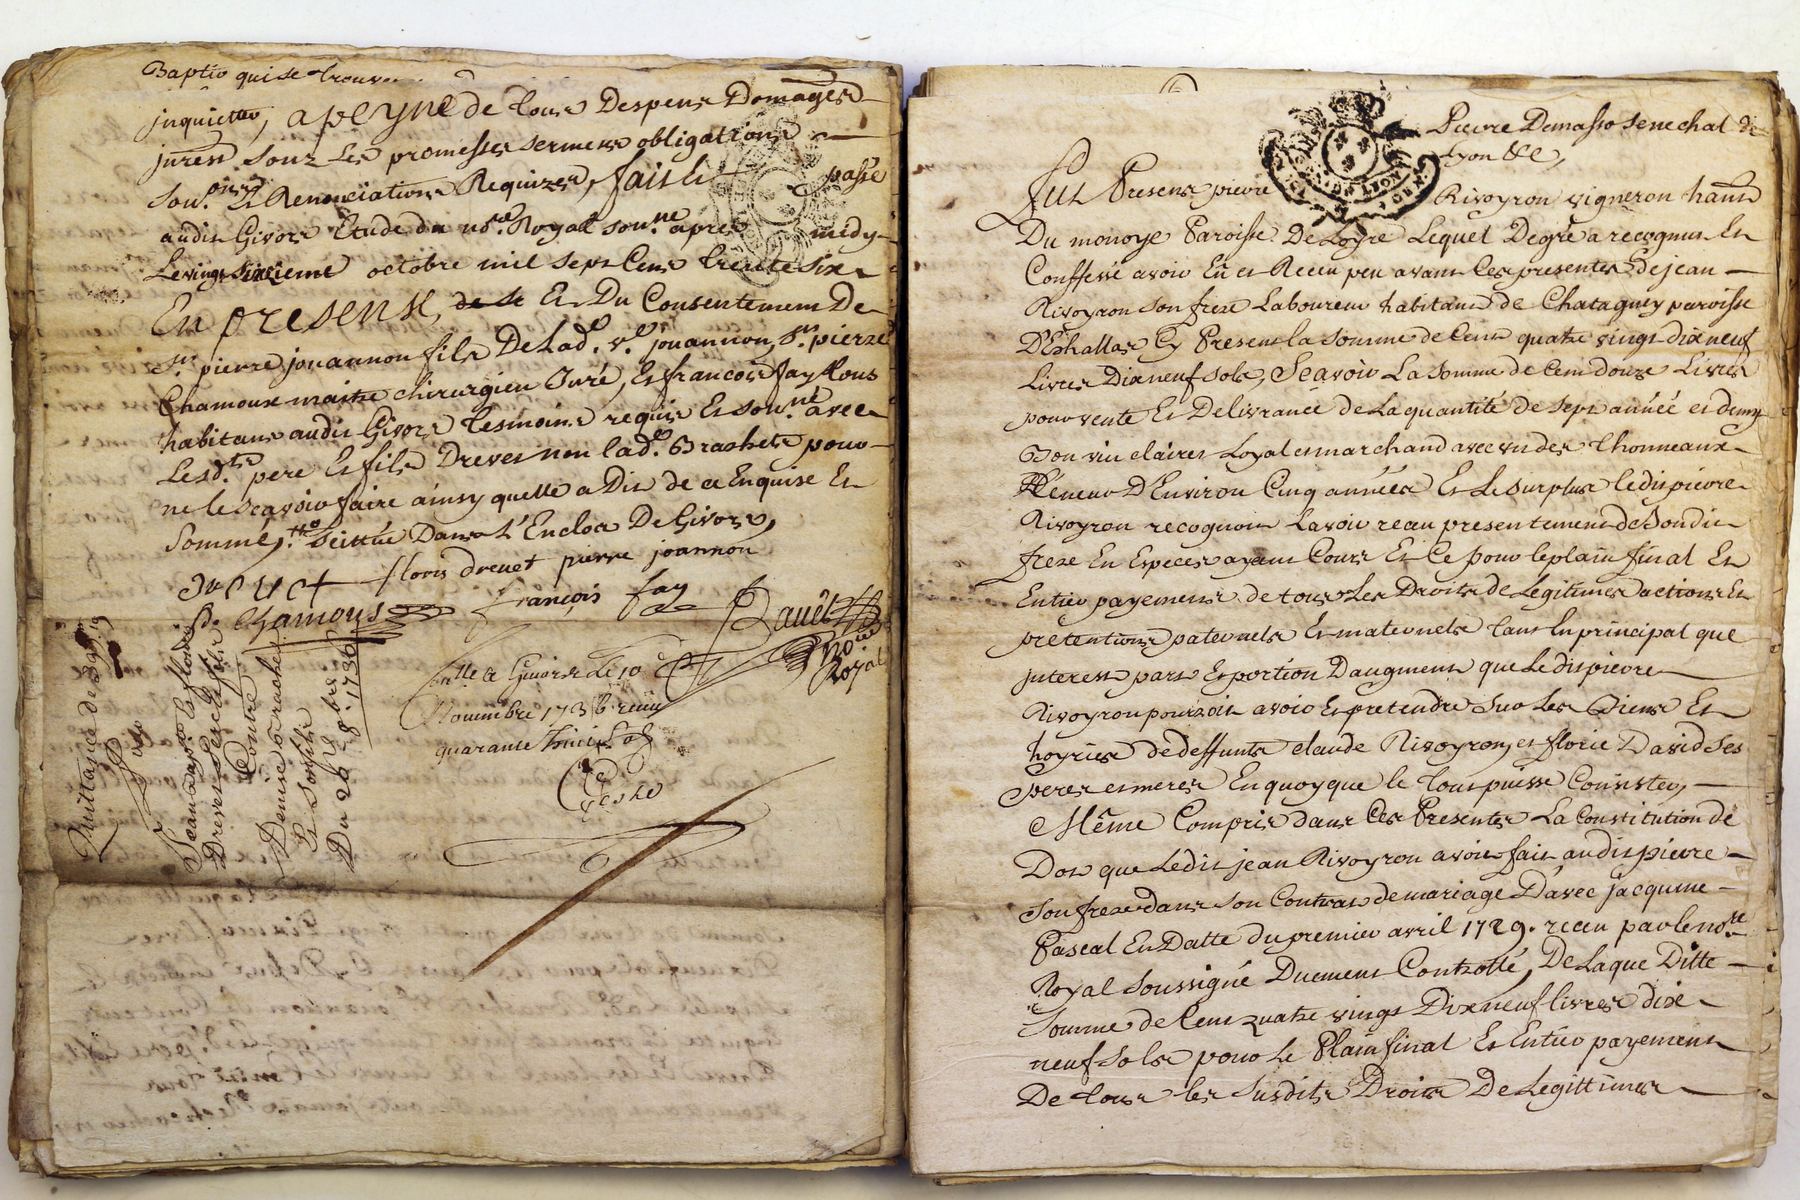 Baptie qui se trouv
jnquietter, a peyne de tous Despens Domages
jnterest sous Les promesses sermens obligations
Renonciations Requizes, fait et passé
audit Givors Etude du no.re Royal sou.né apres midy
Le vingt sixieme octobre mil sept Cens trente six
En presense, de se Et Du Consentement De
Sr. pierre jouannon fils De Lad.e v.e jouannon, Sr. pierre
Chamoux maitre chirurgien Juré, Et francois fay tous
habitans audit Givors tesmoins requis Et sou.né avec
Lesd.ts pere Et fils Drevet non lad.e Brachets pour
ne le scavoir faire ainsy quelle a Dit de ce Enquise Et
Sommé, scittué Dans L'Enclos De Givors,
Drevet floris drevet pierre joannon
P. Chamous françois fay
Ravet
no.re
Royal
a Givors Le 10
Novembre 1736 receu
quarante huit sols
Quittance de 399
Jean
Drevet Et son fils
Contre
Denise Brachet
Et Son fils
Du 26 8bre 1736
Pierre Demasso Senechal de
Lyon &c,
Fut Present pierre Rivoyron vigneron habitant
Du monoye Paroisse De Loyre Lequel Degré a recognus Et
Conffessé avoir Eü et Receu peu avant les presentes De jean
Rivoyron son frere Laboureur habitant de Chatagney paroisse
D'Eshallas Cy Present La Somme de Cent quatre vingt dix neuf
Livres Dix neuf sols, Scavoir La somme de Cent douze Livres
pour vente Et Delivrance de La quantité de sept année et demy
Bon vin clairet Loyal et marchand avec un des thonneaux
Teneur D'Environ Cinq années Et Le Surplus ledit pierre
Rivoyron recognoit Lavoir receu presentement de Sondit
frere En Especes ayant Cours Et Ce pour le plain final Et
Entier payement de tous Les Droits de Legitimes actions Et
pretentions paternels Et maternels tant En principal que
jnterest part Et portion D'augment que Ledit pierre
Rivoyron pourroit avoir Et pretendre Sur Les Biens Et
hoyries de deffunts claude Rivoyron, et florie David Ses
peres et meres En quoy que le tout puisse Consister,
Même Compris dans Ces Presentes La Constitution de
Dot que Ledit jean Rivoyron avoit fait audit pierre
son frere dans son Contrat de mariage D'avec jacqueme
Pascal En Datte du premier avril 1729. receu par le no.re
Royal Soussigné Duement Controllé, De Laque Ditte
Somme de Cent quatre vingt Dix neuf livres dix
neuf sols pour Le Plain final Et Entier payement
De tous les Susdits Droits De Legittimes